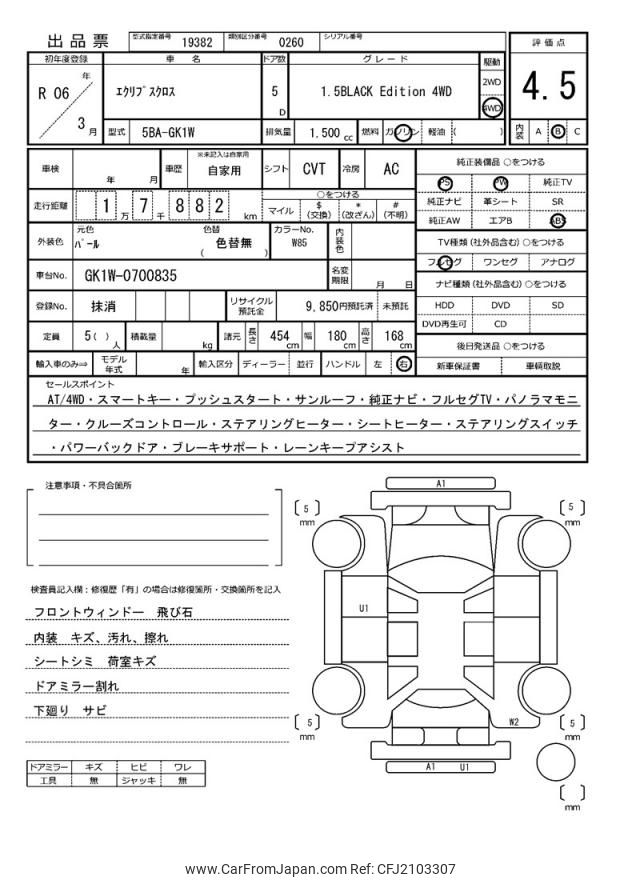 出品票 型式指定番号 19382 類別区分番号 0260 シリアル番号
評価点
初年度登録 車名 ドア数 グレード 駆動
R 06 年 3 月 エクリプスクロス 5 D 1.5BLACK Edition 4WD 2WD 4WD
4.5
型式 5BA-GK1W 排気量 1.500 cc 燃料 ガソリン 軽油 ( ) 内装 A B C
車検 年 月 車歴 ※未記入は自家用 自家用 シフト CVT 冷房 AC
純正装備品 ○をつける
PS PW 純正TV
純正ナビ 革シート SR
純正AW エアB ABS
走行距離 1 万 7 千 8 8 2 km
○をつける
マイル $(交換) *(改ざん) #(不明)
TV種類(社外品含む) ○をつける
フルセグ ワンセグ アナログ
外装色 元色 パール 色替 色替無 ( ) カラーNo. W85 内装色
車台No. GK1W-0700835 名変期限 月 日
ナビ種類(社外品含む) ○をつける
HDD DVD SD
DVD再生可 CD
登録No. 抹消 リサイクル預託金 9,850円預託済 未預託
定員 5( ) 人 積載量 kg 諸元 長さ 454 cm 幅 180 cm 高さ 168 cm
後日発送品 ○をつける
新車保証書 車輌取説
輸入車のみ⇒ モデル年式 年 輸入区分 ディーラー 並行 ハンドル 左 右
セールスポイント
AT/4WD・スマートキー・プッシュスタート・サンルーフ・純正ナビ・フルセグTV・パノラマモニ
ター・クルーズコントロール・ステアリングヒーター・シートヒーター・ステアリングスイッチ
・パワーバックドア・ブレーキサポート・レーンキープアシスト
注意事項・不具合箇所
検査員記入欄:修復歴「有」の場合は修復箇所・交換箇所を記入
フロントウィンドー 飛び石
内装 キズ、汚れ、擦れ
シートシミ 荷室キズ
ドアミラー割れ
下廻り サビ
ドアミラー キズ ヒビ ワレ
工具 無 ジャッキ 無
A1
5 mm
5 mm
U1
5 mm
W2
5 mm
A1 U1
mm
www.CarFromJapan.com Ref: CFJ2103307